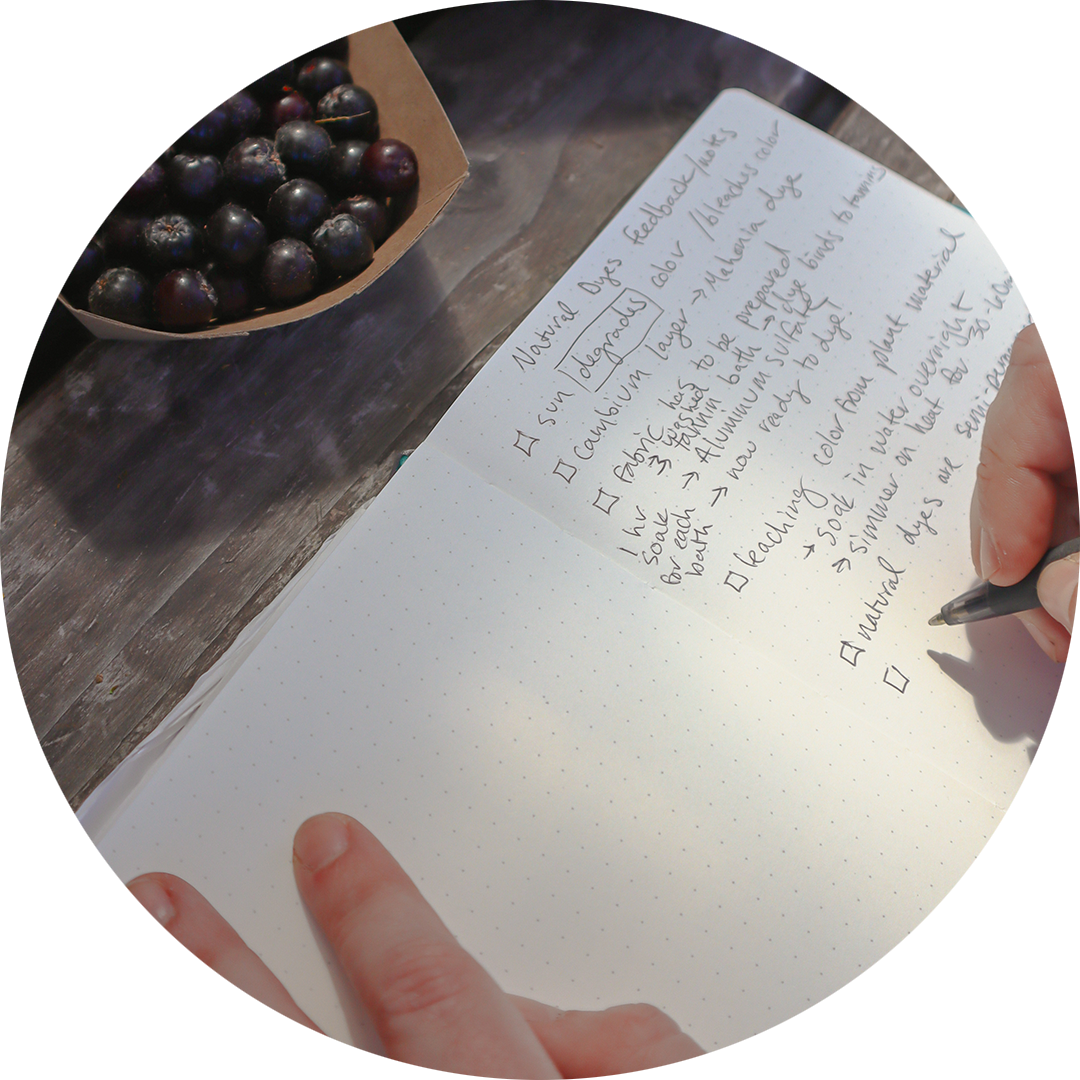 Natural Dyes feedback/notes
□ sun degrades color /bleaches color
□ Cambium layer → Mahonia dye
□ fabric has to be prepared
→ washed
→ tannin bath → dye binds to tannins
→ Aluminum sulfate
→ now ready to dye!
1 hr
soak
for each
bath
□ leaching color from plant material
→ soak in water overnight
→ simmer on heat for 30-
□ natural dyes are semi-
□